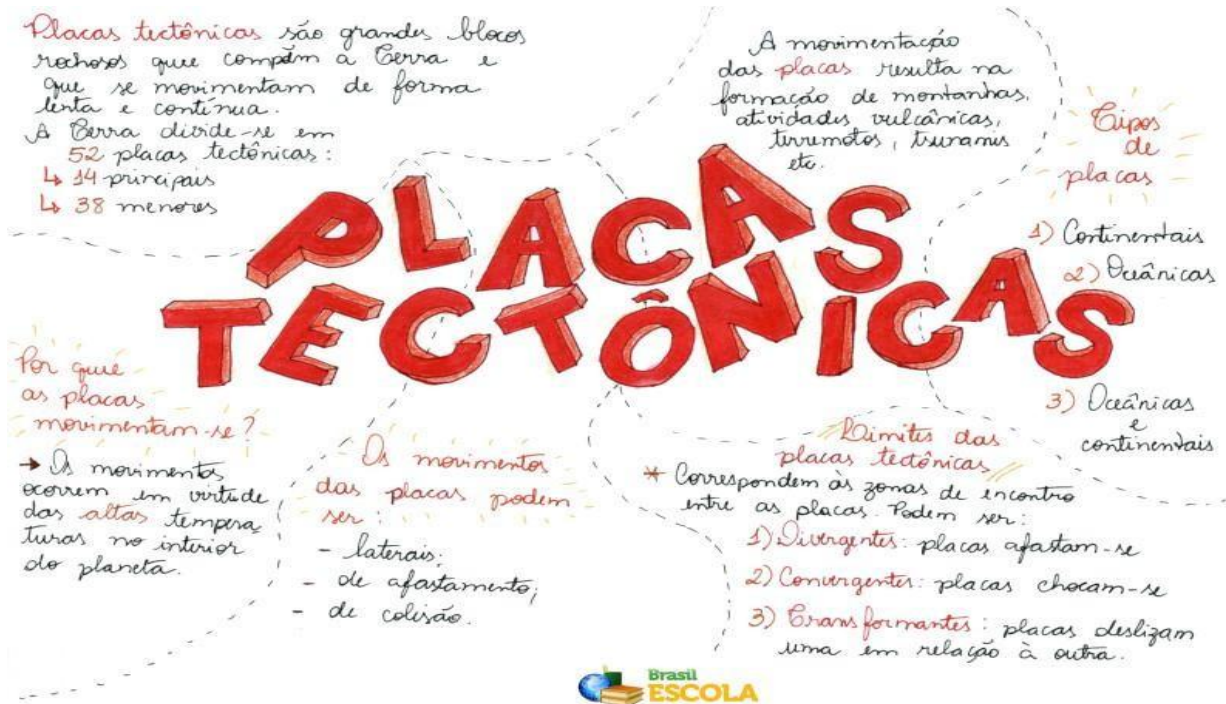 Placas tectônicas são grandes blocos
rochosos que compõem a Terra e
que se movimentam de forma
lenta e contínua.
A Terra divide-se em
52 placas tectônicas:
↳ 14 principais
↳ 38 menores
A movimentação
das placas resulta na
formação de montanhas,
atividades vulcânicas,
terremotos, tsunamis
etc.
Tipos
de
placas
1) Continentais
2) Oceânicas
3) Oceânicas
e
continentais
PLACAS
TECTÔNICAS
Por que
as placas
movimentam-se?
→ Os movimentos
ocorrem em virtude
das altas tempera-
turas no interior
do planeta.
Os movimentos
das placas podem
ser:
- laterais;
- de afastamento;
- de colisão.
Limites das
placas tectônicas
* Correspondem às zonas de encontro
entre as placas. Podem ser:
1) Divergentes: placas afastam-se
2) Convergentes: placas chocam-se
3) Transformantes: placas deslizam
uma em relação à outra.
Brasil
ESCOLA